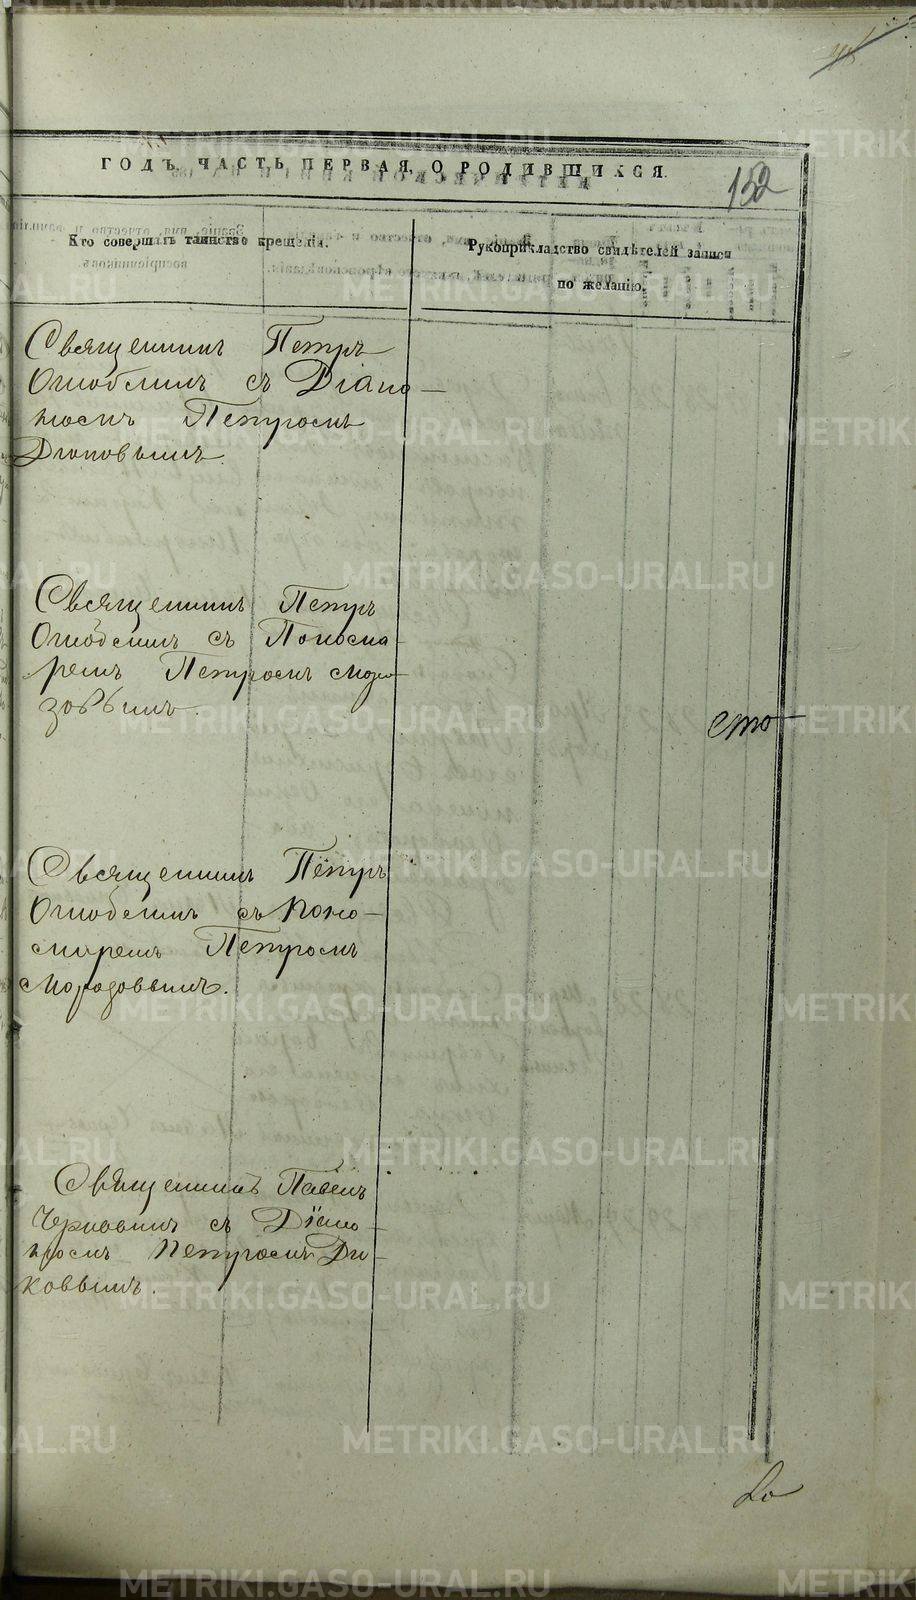 ГОДЪ, ЧАСТЬ ПЕРВАЯ, О РОДИВШИХСЯ.
152
Кто совершалъ таинство крещенія.
Рукоприкладство свидѣтелей записи
по желанію.
Священникъ Петръ
съ Діако-
номъ Петромъ
Диковымъ
Священникъ Петръ
съ Понома-
ремъ Петромъ Моро-
зовымъ.
Священникъ Петръ
съ Поно-
маремъ Петромъ
Морозовымъ.
сто
Священникъ Павелъ
съ Діако-
номъ Петромъ Ди-
ковымъ.
METRIKI.GASO-URAL.RU